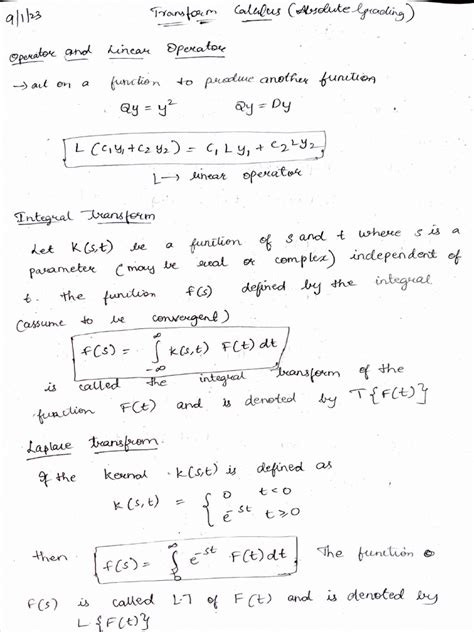 9/1/23
Transform Calculus (Absolute Grading)
Operator and Linear Operator
→ act on a function to produce another function
Qy = y² Qy = Dy
L (c₁y₁ + c₂y₂) = c₁Ly₁ + c₂Ly₂
L→ linear operator
Integral transform
Let K(s,t) be a function of s and t where s is a
parameter (may be real or complex) independent of
t. the function f(s) defined by the integral
(assume to be convergent)
f(s) = ∫_{-∞}^{∞} K(s,t) F(t) dt
is called the integral transform of the
function F(t) and is denoted by T{F(t)}
Laplace transfrom.
If the kernal K(s,t) is defined as
K(s,t) = { 0 t<0
e^{-st} t≥0
then f(s) = ∫_{0}^{∞} e^{-st} F(t) dt The function
f(s) is called L.T of F(t) and is denoted by
L{F(t)}